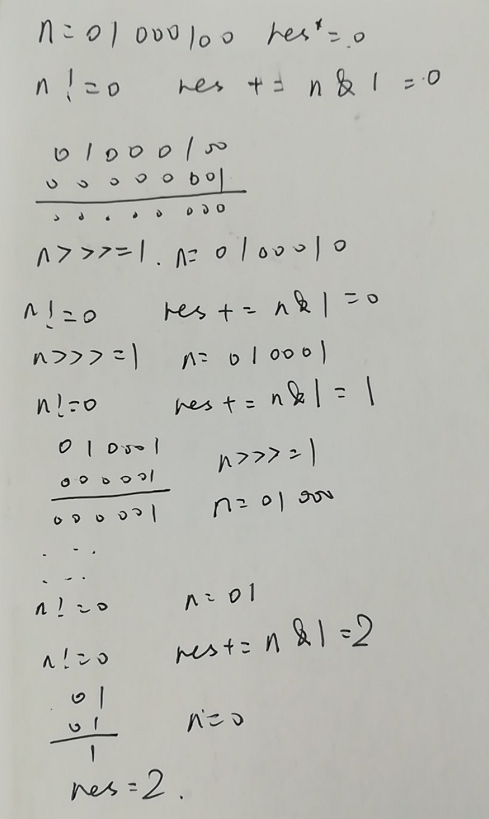 n=01000100 res=0
n!=0 res += n&1=0
01000100
00000001
00000000
n>>>=1. n=0100010
n!=0 res+=n&1=0
n>>>=1 n=010001
n!=0 res+=n&1=1
010001 n>>>=1
000001
000001 n=01000
...
...
n!=0 n=01
n!=0 res+=n&1=2
01
01 n=0
1
res=2.